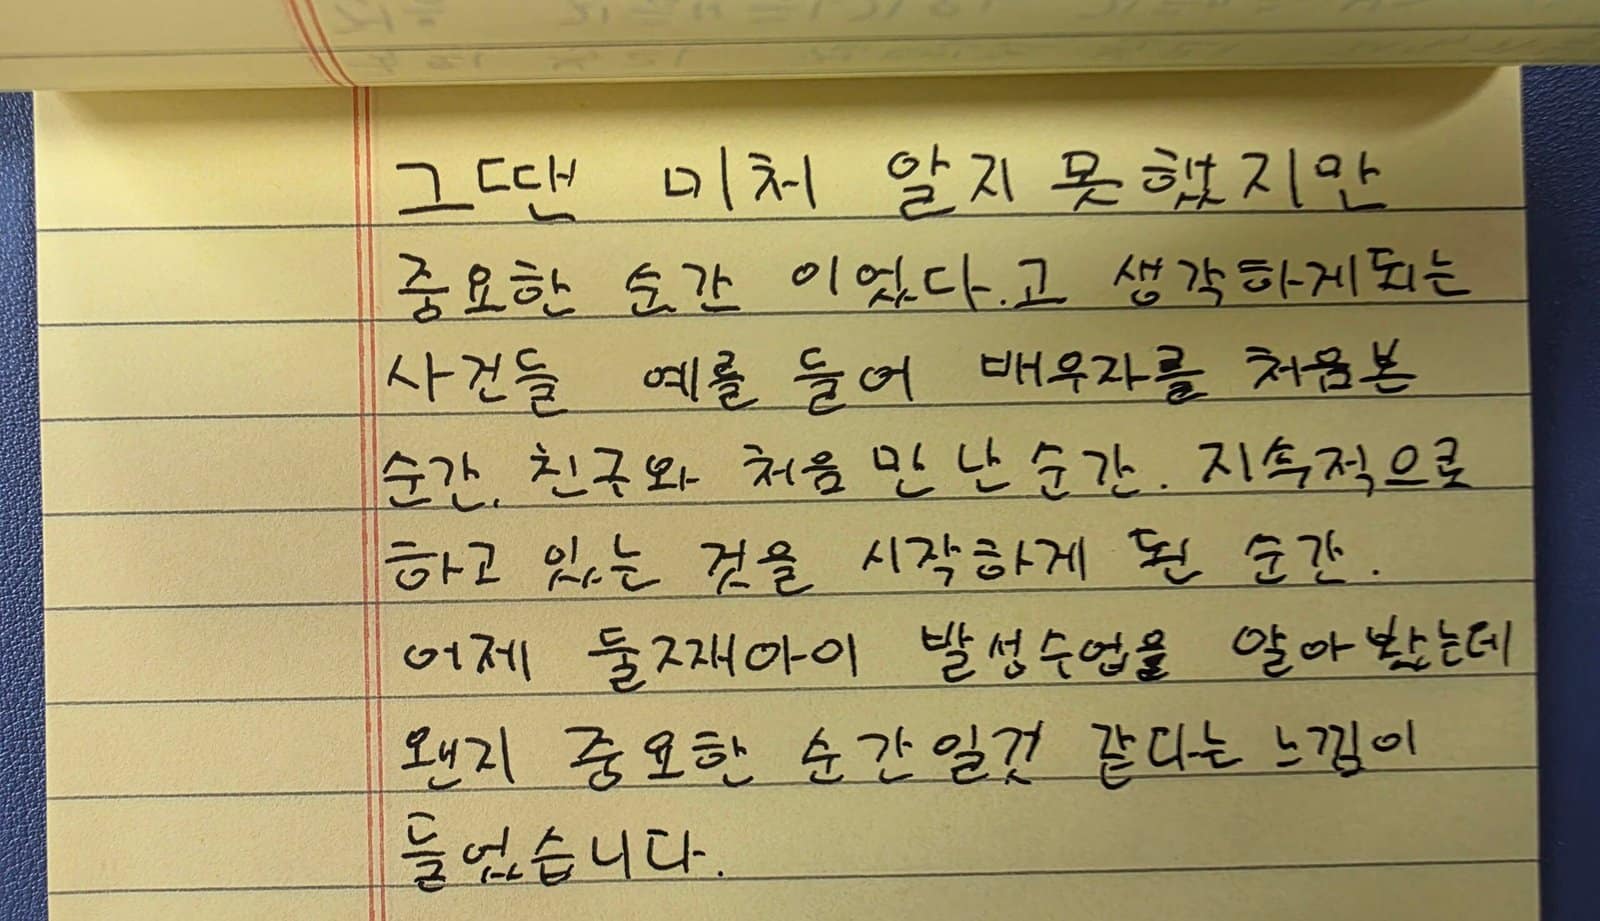 그땐 미처 알지 못했지만
중요한 순간 이었다.고 생각하게되는
사건들 예를 들어 배우자를 처음본
순간. 친구와 처음 만난순간. 지속적으로
하고 있는 것을 시작하게 된 순간.
어제 둘째아이 발성수업을 알아봤는데
왠지 중요한 순간일것 같다는 느낌이
들었습니다.